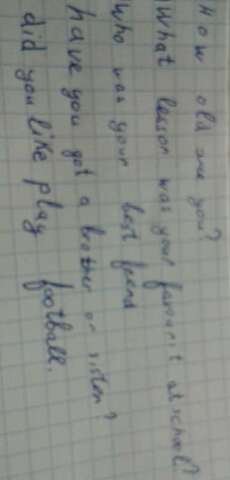 How old are you?
What lesson was your favourit at school?
Who was your best friend
have you got a brother or sister?
did you like play football.